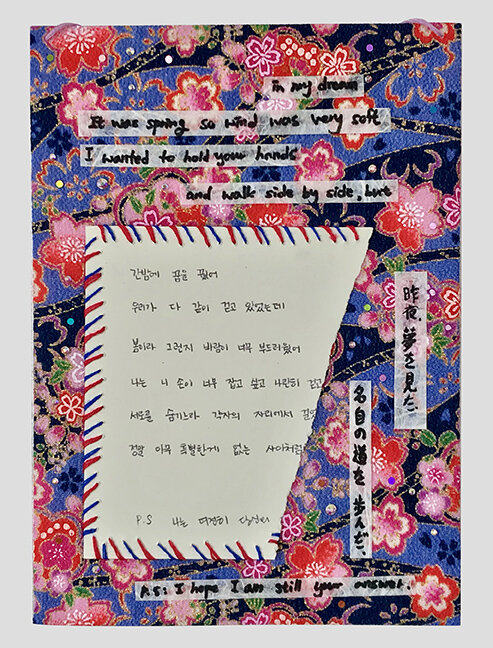 in my dream
It was spring so wind was very soft
I wanted to hold your hands
and walk side by side, but
간밤에 꿈을 꿨어
우리가 다 같이 걷고 있었는데
봄이라 그런지 바람이 너무 부드러웠어
나는 니 손이 너무 잡고 싶고 나란히 걷고
서로를 숨기느라 각자의 자리에서 걸었
정말 아무 특별한게 없는 사이처럼
P.S 나는 여전히 당신의
昨夜、夢を見た。
各自の道を歩んだ。
P.S: I hope I am still your answer.